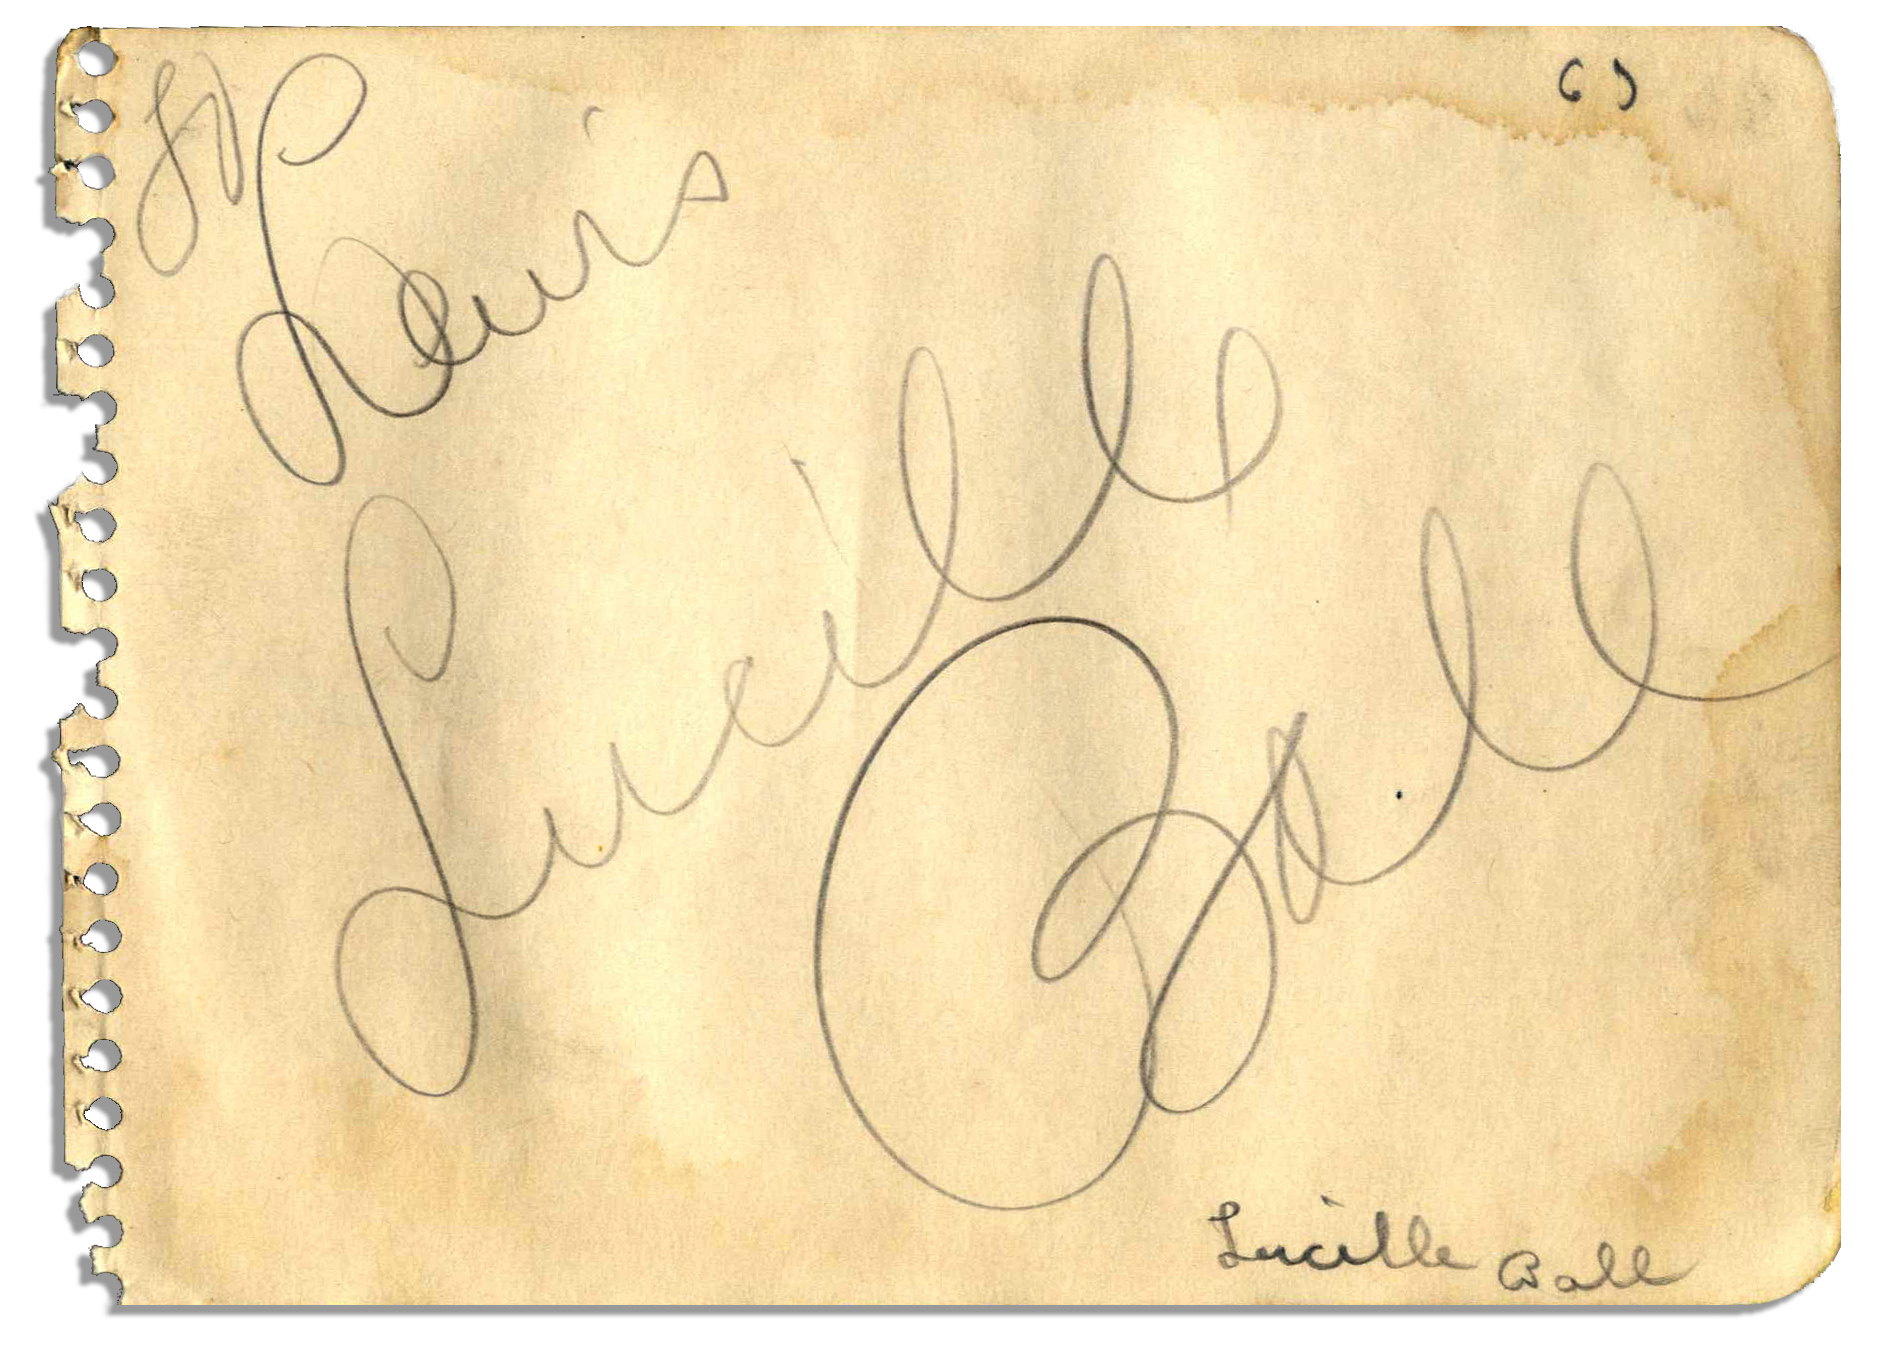 To
Lewis
Lucille
Ball
Lucille Ball